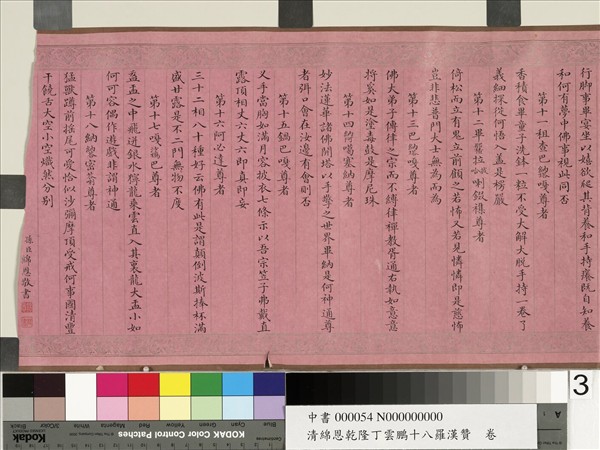 行脚事畢宴坐以嬉欲爬其背養和手持癢既自知養
和何有夢中佛事視此同否
第十一租查巴納塔嘎尊者
香積食畢童子洗鉢一粒不受大解大脫手持一卷了
義細探從何悟入蓋是楞嚴
第十二畢
喇
尊者
倚松而立有鬼立前顧之若怖又若見憐憐即是慈怖
豈非悲普門大士無為而為
第十三巴
嘎尊者
佛大弟子傳律之宗而不縛律禪教胥通右執如意意
將奚如是塗毒鼓是摩尼珠
第十四
噶塞納尊者
妙法蓮華諸佛開塔以手擎之世界畢納是何神通尊
者弭口會在汝邊有會則否
第十五錫巴嘎尊者
叉手當胸如滿月容披衣七條示以吾宗笠子弗戴直
露頂相丈六丈六即真即妄
第十六阿必達尊者
三十二相八十種好云佛有此是謂顛倒波斯捧杯滿
盛甘露是不二門無物不度
第十七嘎
巴尊者
盋盂之中龍迸銀水獰龍乘雲直入其裏龍大盂小如
何可容偶作遊戲非謂神通
第十八納
尊者
猛獸蹲前搖尾可愛恰似沙彌摩頂受戒何事國清豐
干饒舌大空小空熾然分別
孫臣綿恩敬書
Blue
Cyan
Green
Yellow
Red
Magenta
White
Black
KODAK Color Control Patches
Kodak
3
中書 000054 N000000000
清綿恩乾隆丁雲鵬十八羅漢贊 卷